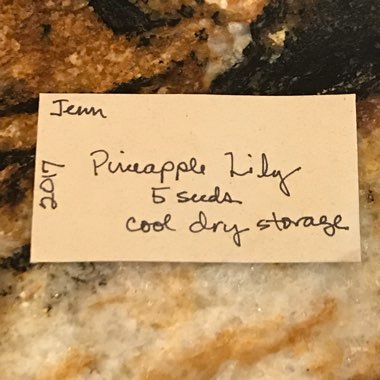 Jenn
2017
Pineapple Lily
5 seeds
cool dry storage